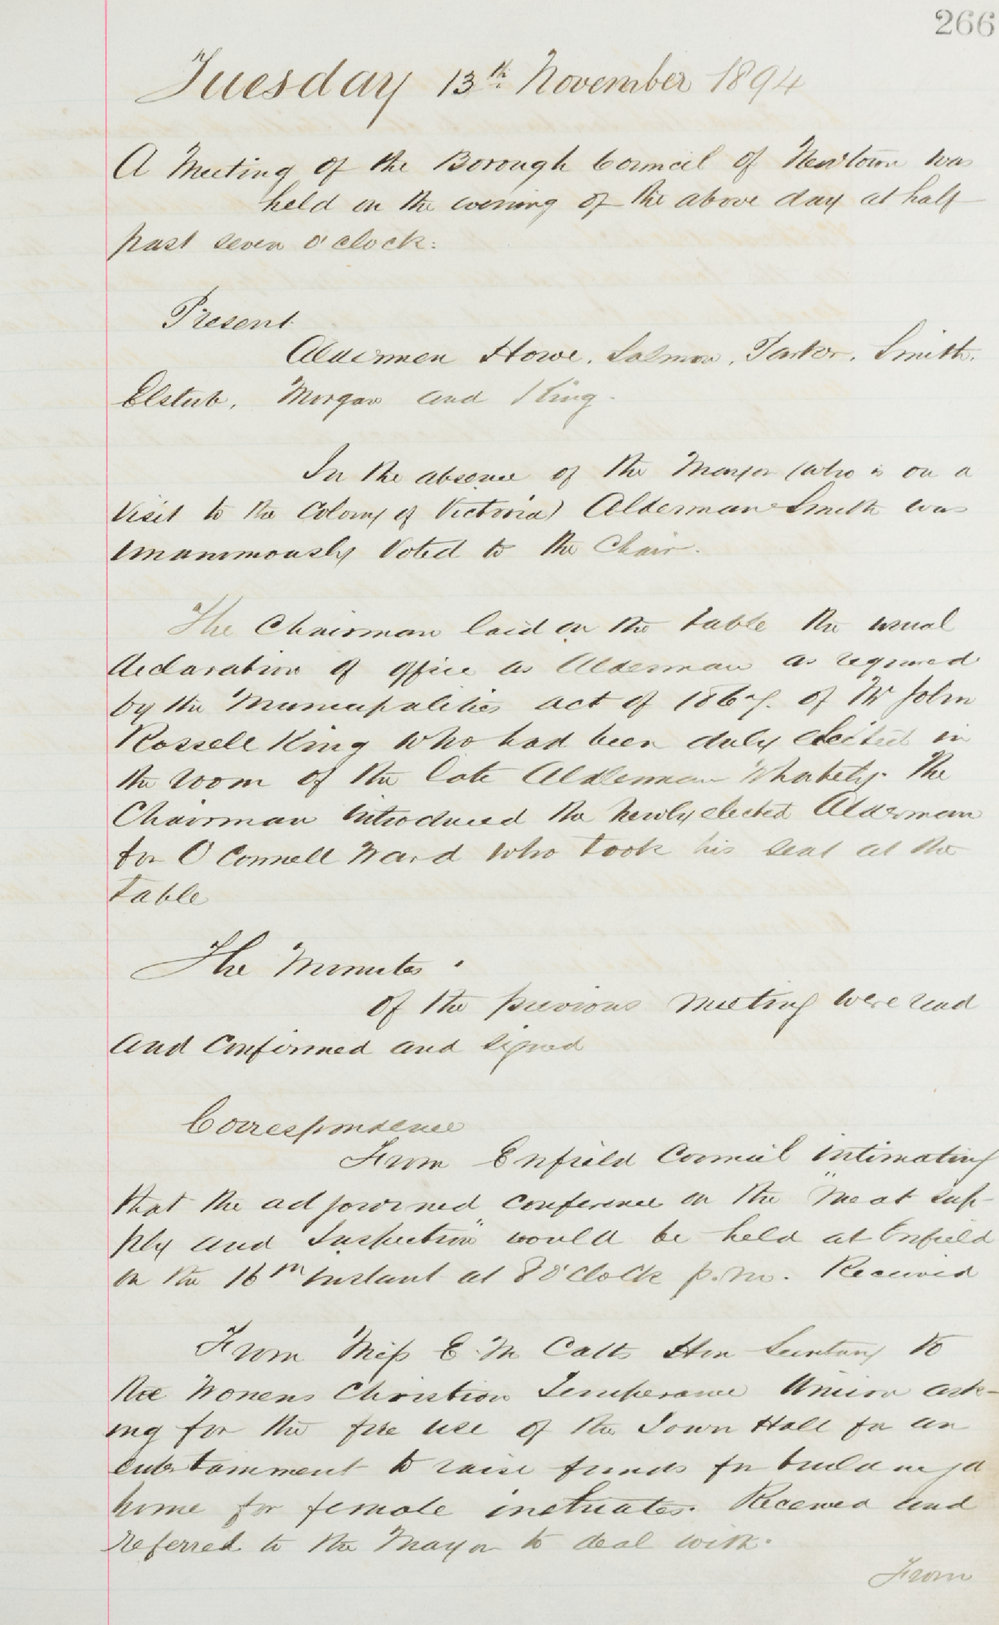 266
Tuesday 13th November 1894
A Meeting of the Borough Council of Newtown was
held on the evening of the above day at half
past seven o'clock.
Present
Aldermen Howe, Salmon, Parker, Smith,
Elstub, Morgan and King.
In the absence of the Mayor (who is on a
visit to the Colony of Victoria) Alderman Smith was
unanimously Voted to the Chair.
The Chairman laid on the table the usual
declaration of office as Alderman as required
by the Municipalities act of 1867. of Mr John
Rossell King who had been duly elected in
the room of the late Alderman Whately. The
Chairman introduced the newly elected Alderman
for O'Connell Ward who took his seat at the
table
The Minutes.
of the previous meeting were read
and confirmed and signed
Correspondence
From Enfield Council intimating
that the adjourned conference on the "Meat Sup-
ply and Inspection" would be held at Enfield
on the 16th instant at 8 o'clock p.m. Received
From Miss E M Catts Hon Secretary to
the Womens Christian Temperance Union ask-
ing for the free use of the Town Hall for an
entertainment to raise funds for building a
home for female inebriates. Received and
referred to the Mayor to deal with.
From